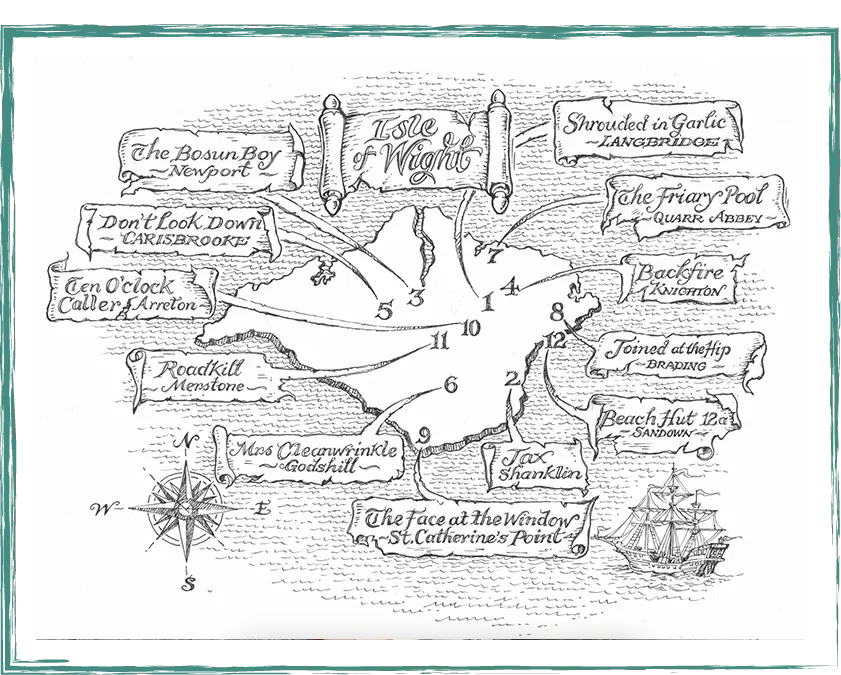 Isle
of Wight
Shrouded in Garlic
~LANGBRIDGE~
The Bosun Boy
~Newport~
The Friary Pool
~QUARR ABBEY~
Don't Look Down
~CARISBROOKE~
Backfire
~KNIGHTON
Ten O'clock
Caller ~Arreton~
7
4
3
1
5
8
10
11
12
Joined at the Hip
~BRADING~
Roadkill
~Merstone~
6
2
Beach Hut 12a
~SANDOWN~
9
Mrs Cleanwrinkle
~Godshill~
Jax
Shanklin
N
W
E
S
The Face at the Window
~St. Catherine's Point~